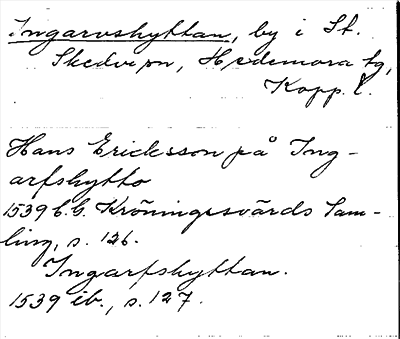 Ingarvshyttan, by i St.
Skedvi pn, Hedemora tg,
Kopp. l.
Hans Ericksson på Ing-
arfshytto
1539 b.b. Kröningssvärds Sam-
ling, s. 126.
Ingarfshyttan.
1539 ib., s. 127.